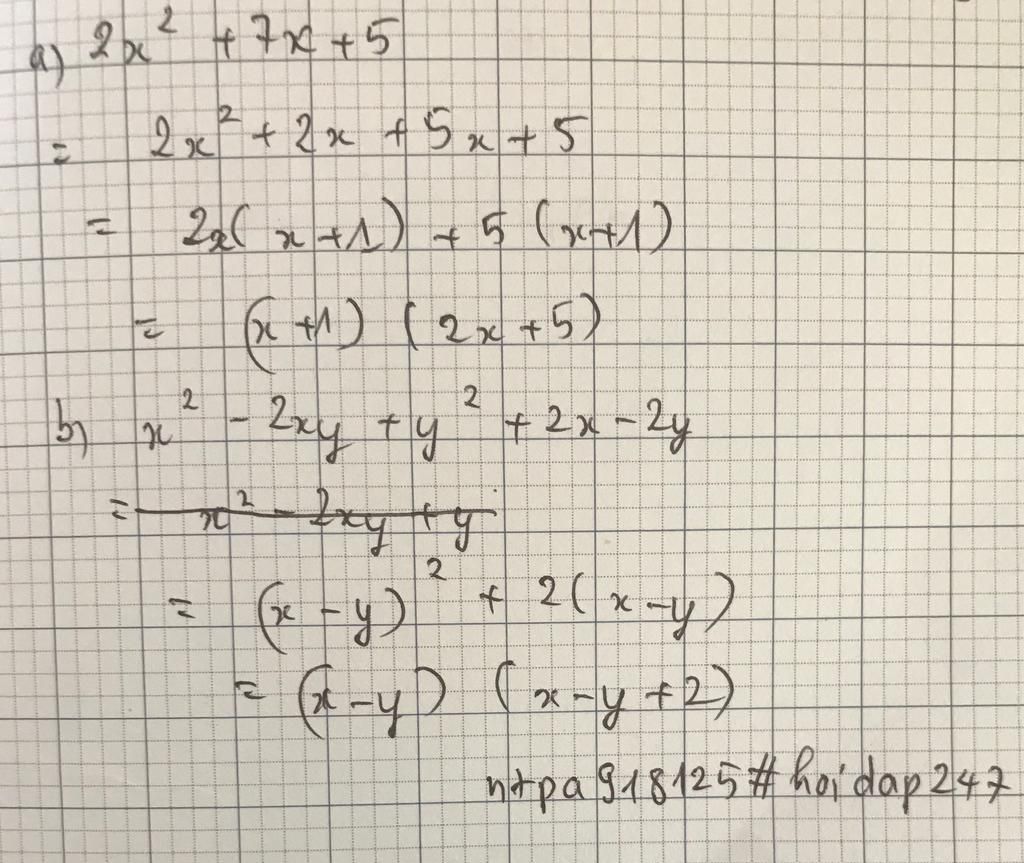 a) 2x² + 7x + 5
= 2x² + 2x + 5x + 5
= 2x( x+1) + 5 (x+1)
= (x+1) (2x+5)
b) x² - 2xy + y² + 2x - 2y
= x² - 2xy + y
= (x - y)² + 2( x-y)
= (x-y) (x-y+2)
ntpa918125#hoidap247